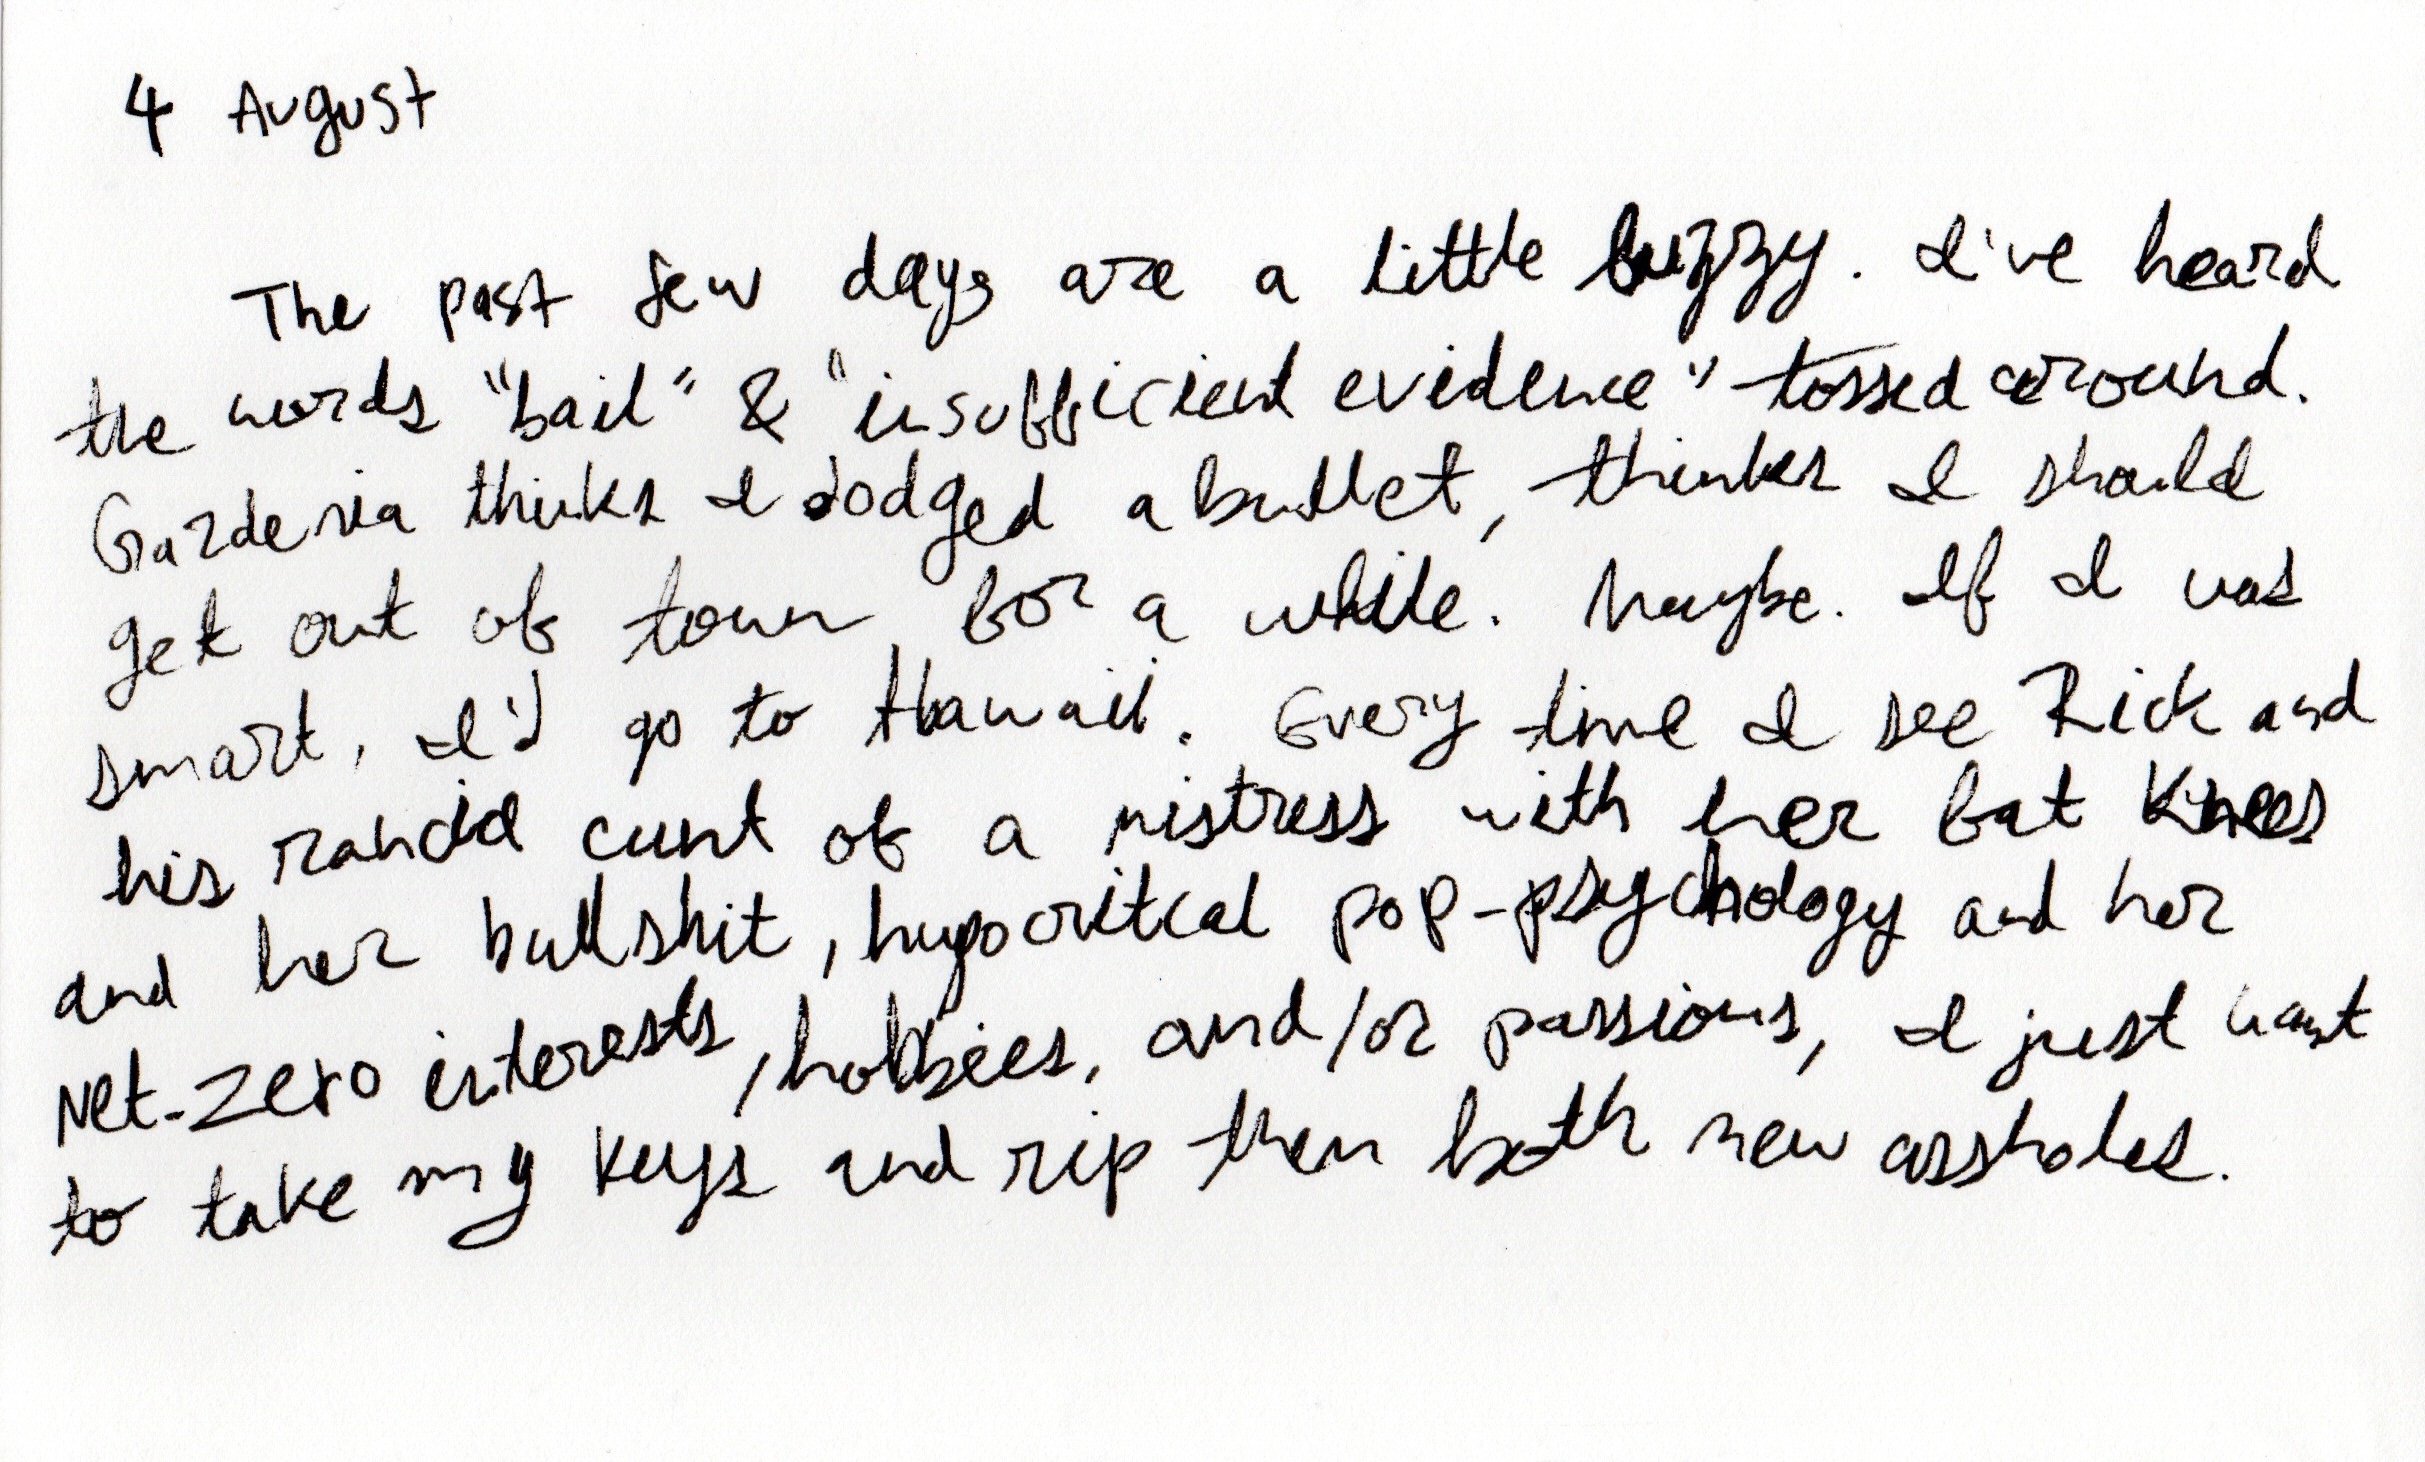 4 August
The past few days are a little fuzzy. I've heard
the words "bail" & "insufficient evidence" tossed around.
Gardenia thinks I dodged a bullet, thinks I should
get out of town for a while. Maybe. If I was
smart, I'd go to Hawaii. Every time I see Rick and
his rancid cunt of a mistress with her fat knees
and her bullshit, hypocritical pop-psychology and her
Net-zero interests, hobbies, and/or passions, I just want
to take my keys and rip them both new assholes.